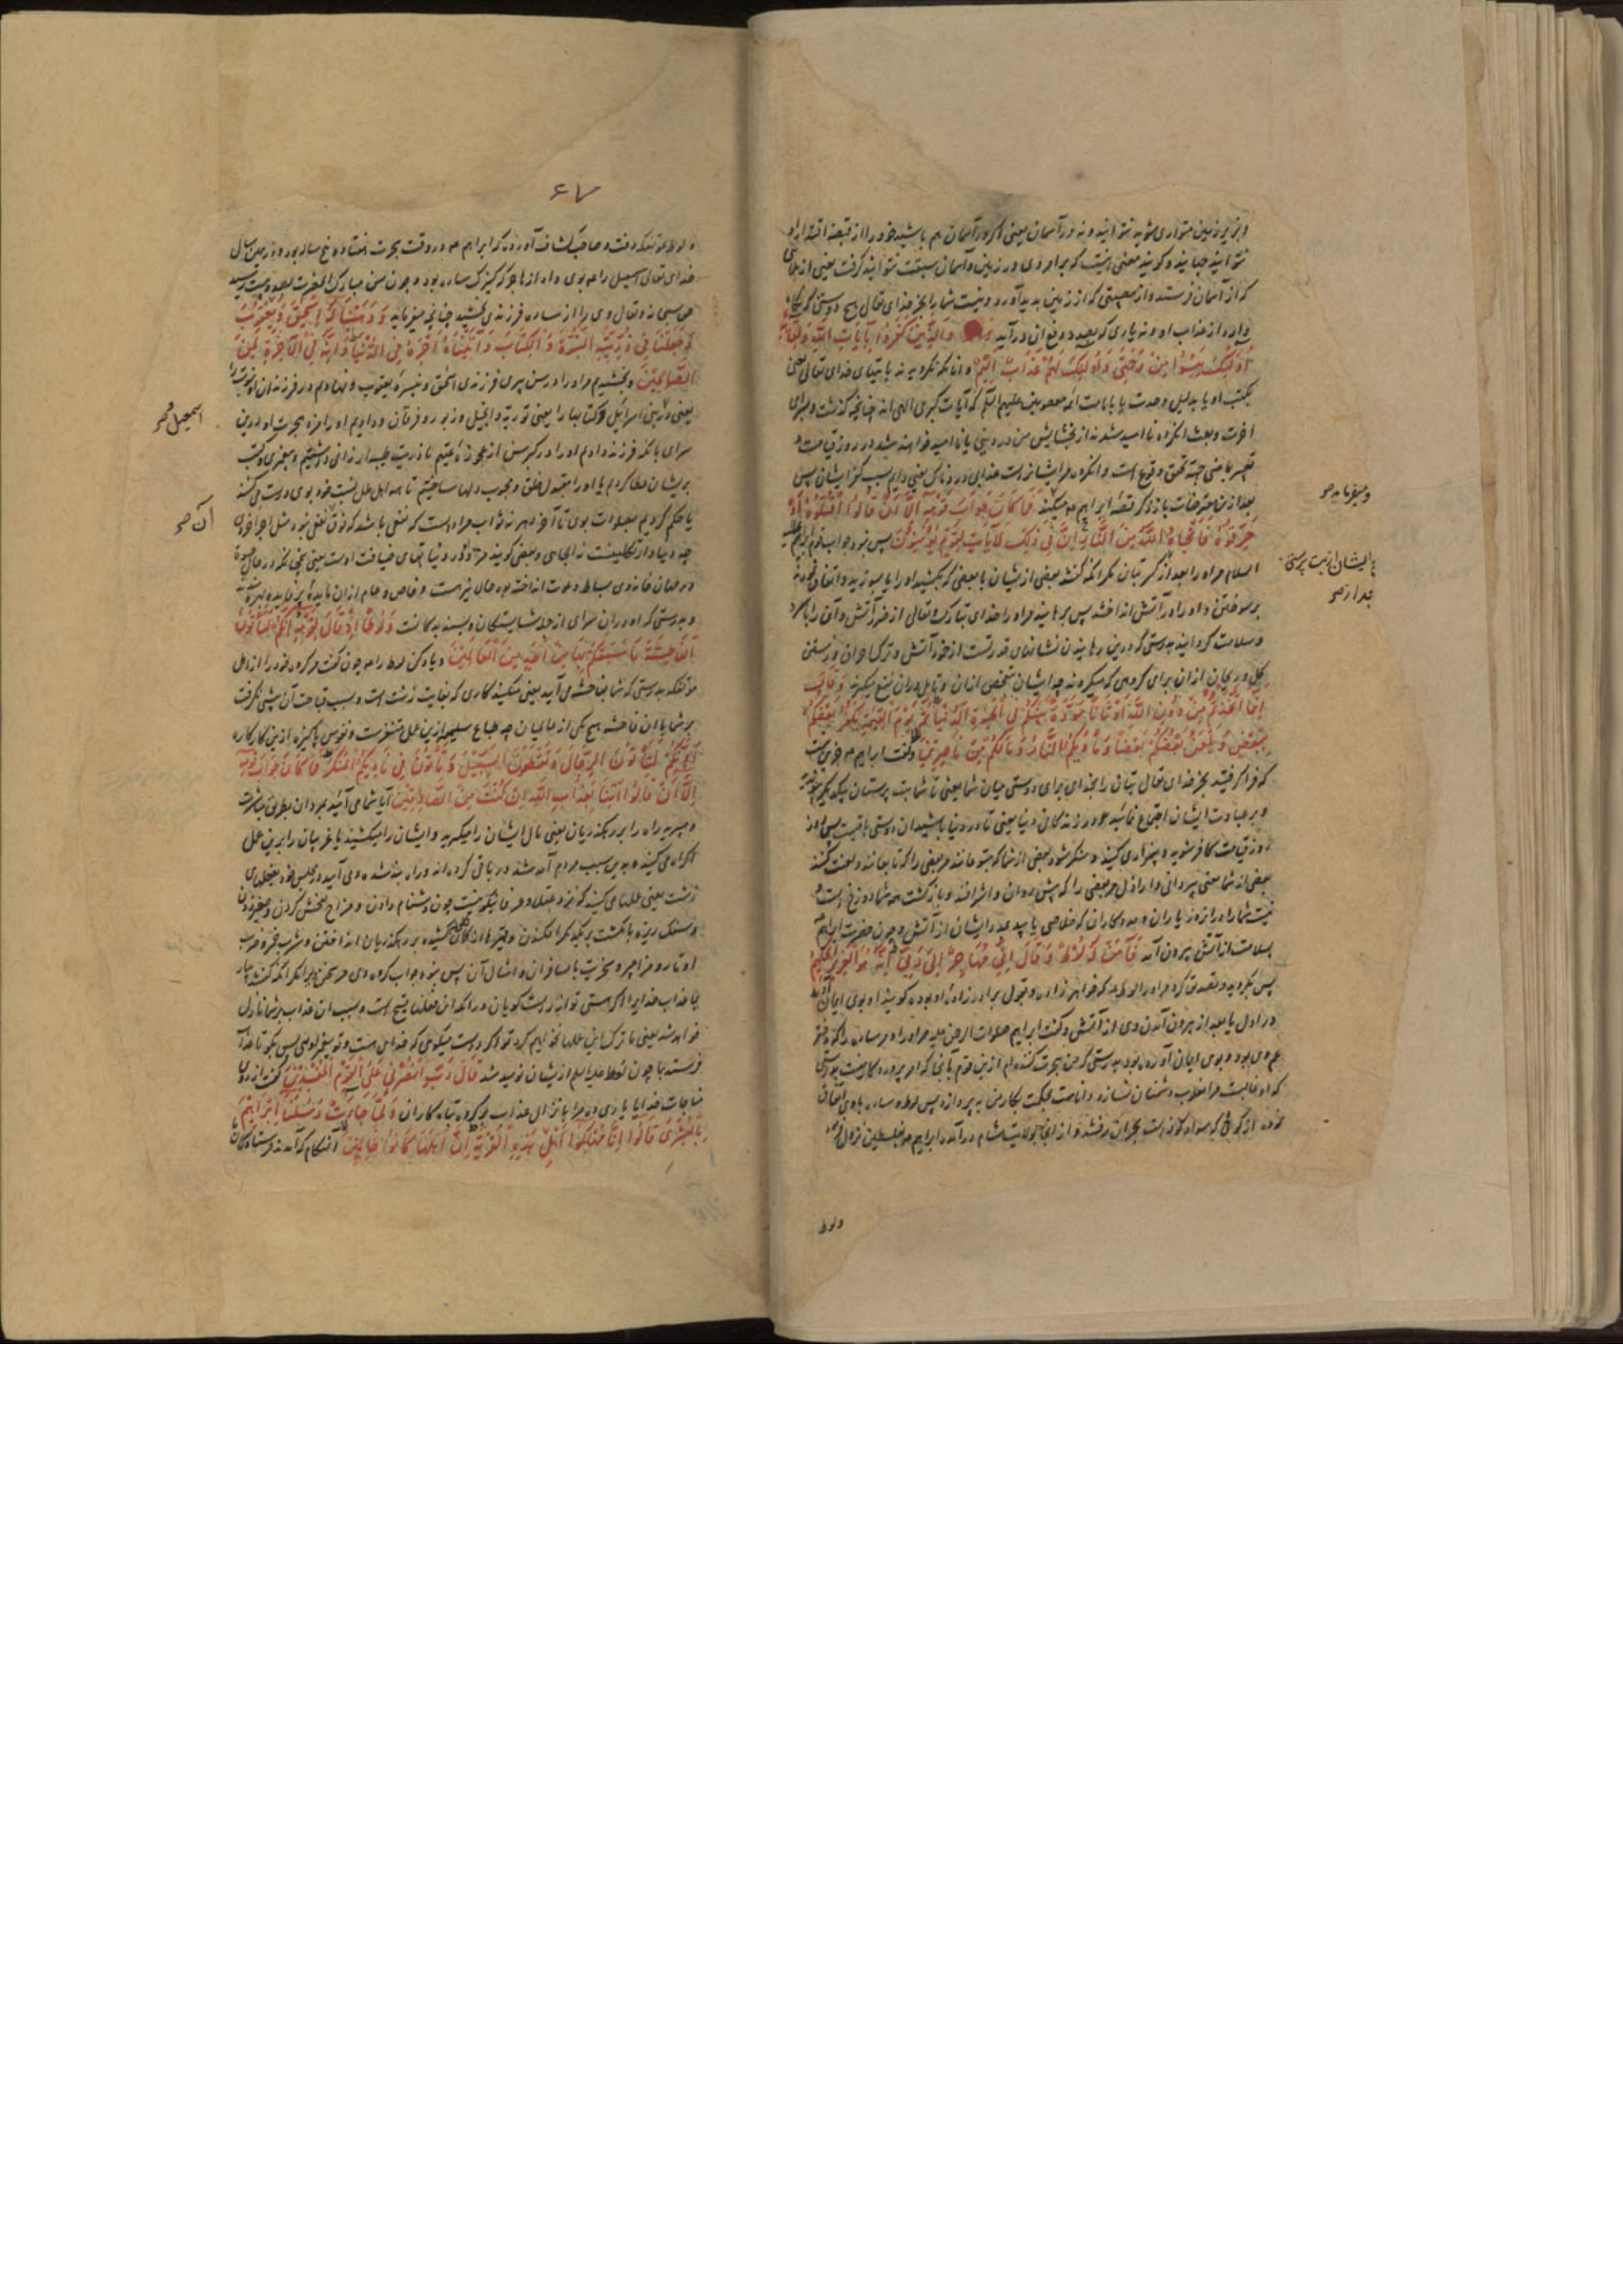 و نه زیر زمین متواری شوید نتوانید و نه در آسمان یعنی اگر در آسمان هم باشید خود را از قبضه اقتدار او
نتوانید جهانید و گویند معنی اینست که بر امر وی در زمین و آسمان سبقت نتوانید گرفت یعنی از بلائی
که از آسمان فرستد و از مصیبتی که از زمین بدید آورد و نیست شما را بجز خدای تعالی هیچ دوستی که نگاه
دارد از عذاب او و نه یاری که بصدد دفع آن درآید وَالَّذِينَ كَفَرُوا بِآيَاتِ اللَّهِ وَلِقَائِهِ
أُولَئِكَ يَئِسُوا مِنْ رَحْمَتِي وَأُولَئِكَ لَهُمْ عَذَابٌ أَلِيمٌ و آنانکه نگرویدند بآیتهای خدای تعالی یعنی
بکتب او یا بدلیل وحدت یا بامامت ائمه معصومین علیهم السلام که آیات کبری الهی‌اند چنانچه گذشت و بسرای
آخرت و بعث آنکروه ناامید شدند از بخشایش من در دنیی یا ناامید خواهند شد در روز قیامت و
تعبیر بماضی جهة تحقق وقوع است و آنکروه مر ایشانراست عذابی دردناک یعنی دایم بسبب کفر ایشان پس
بعد ازین معترضات باز ذکر قصه ابراهیم ع میکند فَمَا كَانَ جَوَابَ قَوْمِهِ إِلَّا أَنْ قَالُوا اقْتُلُوهُ أَوْ
حَرِّقُوهُ فَأَنْجَاهُ اللَّهُ مِنَ النَّارِ إِنَّ فِي ذَلِكَ لَآيَاتٍ لِقَوْمٍ يُؤْمِنُونَ پس نبود جواب قوم ابراهیم علیه
السلام مر او را بعد از کسر بتان مگر آنکه گفتند بعضی از ایشان با بعضی که بکشید او را یا بسوزید و اتفاق نمودند
بر سوختن و او را در آتش انداختند پس برهانید مر او را خدای تبارک و تعالی از ضرر آتش و آن را بر او سرد
و سلامت گردانید بدرستی که درین رهانیدن نشانهای قدرتست از خمود آتش و ترک احراق و رستن
گل و ریحان از آن برای گروهی که میگروند چه ایشان بتفحص از آن و تامل در آن نفع میگیرند وَقَالَ
إِنَّمَا اتَّخَذْتُمْ مِنْ دُونِ اللَّهِ أَوْثَانًا مَوَدَّةَ بَيْنِكُمْ فِي الْحَيَوةِ الدُّنْيَا ثُمَّ يَوْمَ الْقِيمَةِ يَكْفُرُ بَعْضُكُمْ
بِبَعْضٍ وَيَلْعَنُ بَعْضُكُمْ بَعْضًا وَمَأْوَيكُمُ النَّارُ وَمَا لَكُمْ مِنْ نَاصِرِينَ و گفت ابراهیم ع جزین نیست
که فرا گرفتید بجز خدای تعالی بتان را بخدای برای دوستی میان شما یعنی تا شما بت پرستان بیکدیگر
و بر عبادت ایشان اجتماع نمائید در زندگانی دنیا یعنی تا در دنیا باشید آن دوستی باقیست پس در
روز قیامت کافر شوید و بیزاری کنید و منکر شود بعضی از شما که متبوعانند مر بعضی را که تابعانند و لعنت کنند
بعضی از شما یعنی پیروان و اراذل مر بعضی را که پیش روان و اشرافند و بازگشت همه شما دوزخ است و
نیست شما را در آنروز یاران و مددکاران که خلاصی یابید بمدد ایشان از آتش و چون حضرت ابراهیم ع
بسلامت از آتش بیرون آمد فَآمَنَ لَهُ لُوطٌ وَقَالَ إِنِّي مُهَاجِرٌ إِلَى رَبِّي إِنَّهُ هُوَ الْعَزِيزُ الْحَكِيمُ
پس بگروید و تصدیق کرد مر او را لوط ع که خواهرزاده و بقول برادرزاده او بوده گویند او بوی ایمان آورد
در اول یا بعد از بیرون آمدن وی از آتش و گفت ابراهیم صلوات الرحمن علیه مر او را و مر ساره را که دختر
عم وی بود و بوی ایمان آورده بود بدرستی که من هجرت کننده‌ام ازین قوم بآنجا که امر پروردگار منست بدرستی
که او غالبست مرا مغلوب دشمنان نسازد و داناست بحکمت بکار من بپردازد پس لوط و ساره باوی اتفاق
نموده از کوثی که سواد کوفه است بحران رفتند و از آنجا بولایت شام درآمدند ابراهیم ع بفلسطین نزول کرد
ولوط
و میفرماید صح
ایشان از بت پرستی
بعد از صح
۶۷
و لوط ع بموتفکه رفت و صاحب کشاف آورده که ابراهیم ع در وقت هجرت هفتاد و پنج ساله بود و در همان سال
خدای تعالی اسمعیل را ع بوی داد از هاجر که کنیزک ساره بود و چون سن مبارک آنحضرت بصد و بیست رسید
حق سبحانه و تعالی وی را از ساره فرزندی بخشید چنانچه میفرماید وَوَهَبْنَا لَهُ إِسْحَقَ وَيَعْقُوبَ
وَجَعَلْنَا فِي ذُرِّيَّتِهِ النُّبُوَّةَ وَالْكِتَابَ وَآتَيْنَاهُ أَجْرَهُ فِي الدُّنْيَا وَإِنَّهُ فِي الْآخِرَةِ لَمِنَ
الصَّالِحِينَ و بخشیدیم مر او را در سن پیری فرزندی اسحق و نبیره یعقوب و نهادیم در فرزندان او نبوت را
یعنی در بنی اسرائیل و کتابها را یعنی توریة و انجیل و زبور و فرقان و دادیم او را مزد هجرت او درین
سرای بآنکه فرزند دادیم او را در کبر سن از عجوزه عقیم تا ذریت طیبه ارزانی داشتیم و پیغمبری و کتب
بریشان عطا کردیم یا او را مقبول خلق و محبوب دلها ساختیم تا همه اهل ملل نسبت خود بوی درست می‌کنند
یا حکم کردیم بصلوات بوی تا آخر دهر نه ثواب مراد است که نفعی باشد که فوق نفعی نبود مثل اجر اخروی
چه دنیا دار تکلیفست نه الجای و بعضی گویند مزد او در دنیا بقای ضیافت اوست یعنی همچنانکه در حال حیوة
در مهمانخانه وی بساط دعوت انداخته بود حالی نیز هست و خاص و عام از آن مایده پر فایده بهره‌مندند
و بدرستی که او در آن سرای از جمله شایستگان و پسندیدگانست وَلُوطًا إِذْ قَالَ لِقَوْمِهِ إِنَّكُمْ لَتَأْتُونَ
الْفَاحِشَةَ مَا سَبَقَكُمْ بِهَا مِنْ أَحَدٍ مِنَ الْعَالَمِينَ و یاد کن لوط را ع چون گفت مر گروه خود را از اهل
موتفکه بدرستی که شما بفاحشه می‌آیید یعنی میکنید کاری که بغایت زشت است و بسبب قباحت آن پیشی نگرفت
بر شما باین فاحشه هیچ یکی از عالمیان چه طباع سلیمه ازین عمل متنفرست و نفوس پاکیزه ازین کار کاره
أَئِنَّكُمْ لَتَأْتُونَ الرِّجَالَ وَتَقْطَعُونَ السَّبِيلَ وَتَأْتُونَ فِي نَادِيكُمُ الْمُنْكَرَ فَمَا كَانَ جَوَابَ قَوْمِهِ
إِلَّا أَنْ قَالُوا ائْتِنَا بِعَذَابِ اللَّهِ إِنْ كُنْتَ مِنَ الصَّادِقِينَ آیا شما می‌آیید بمردان بطریق مباشرت
و میبرید راه را بر رهگذریان یعنی مال ایشان را میگیرید و ایشان را میکشید یا غریبان را برین عمل
اکراه می‌کنید و بدین سبب مردم آمد شد در باقی کرده‌اند و راه بند شده و می‌آیید در مجلس خود بفعلهای
زشت یعنی عملها می‌کنید که نزد عقلا و عرفا نیکو نیست چون دشنام دادن و مزاح بفحش کردن و صفیر زدن
و سنگ ریزه بانگشت بر یکدیگر افکندن و تیرها از کمان کشیده بر رهگذریان انداختن و شرب خمر و ضرب
اوتار و مزامیر و سخریت با مسافران و امثال آن پس نبود جواب گروه وی مر سخن ویرا مگر آنکه گفتند بیار
بما عذاب خدایرا اگر هستی تو از راست گویان در آنکه این فعلها قبیح است و بسبب آن عذاب بر شما نازل
خواهد شد یعنی ما ترک این عملها نخواهیم کرد تو اگر درست میگوئی که خدای هست و تو پیغمبر اوئی پس بگو تا عذاب
فرستد بما چون لوط علیه السلام ازیشان نومید شد قَالَ رَبِّ انْصُرْنِي عَلَى الْقَوْمِ الْمُفْسِدِينَ گفت از روی
مناجات خدایا یاری ده مرا بانزال عذاب بر گروه تباه کاران وَلَمَّا جَاءَتْ رُسُلُنَا إِبْرَاهِيمَ
بِالْبُشْرَى قَالُوا إِنَّا مُهْلِكُوا أَهْلِ هَذِهِ الْقَرْيَةِ إِنَّ أَهْلَهَا كَانُوا ظَالِمِينَ و آنهنگام که آمدند فرستادگان
اسمعیل صح
آن صح